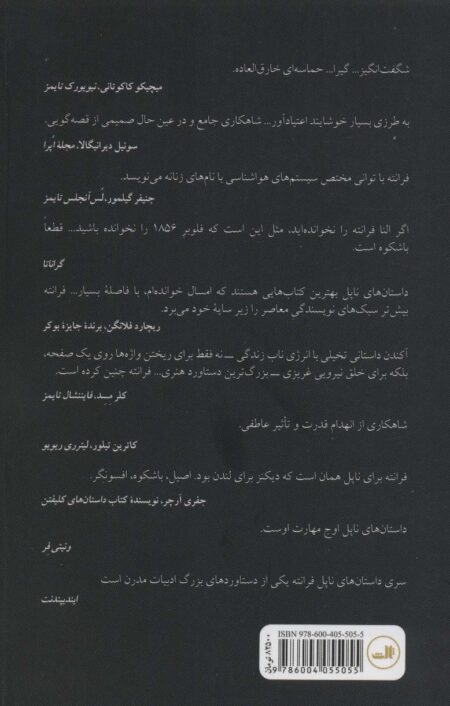 شگفت‌انگیز... گیرا... حماسه‌ای خارق‌العاده.
میچیکو کاکوتانی، نیویورک تایمز
به طرزی بسیار خوشایند اعتیادآور... شاهکاری جامع و در عین حال صمیمی از قصه‌گویی.
سونیل دیرانیگالا، مجلهٔ اُپرا
فرانته با توانی مختص سیستم‌های هواشناسی با نام‌های زنانه می‌نویسد.
جنیفر گیلمور، لُس‌آنجلس تایمز
اگر النا فرانته را نخوانده‌اید، مثل این است که فلوبر ۱۸۵۶ را نخوانده باشید... قطعاً
باشکوه است.
گرانتا
داستان‌های ناپل بهترین کتاب‌هایی هستند که امسال خوانده‌ام، با فاصلهٔ بسیار... فرانته
بیش‌تر سبک‌های نویسندگی معاصر را زیر سایهٔ خود می‌برد.
ریچارد فلانگن، برندهٔ جایزهٔ بوکر
آکندن داستانی تخیلی با انرژی ناب زندگی ـــ نه فقط برای ریختن واژه‌ها روی یک صفحه،
بلکه برای خلق نیرویی غریزی ـــ بزرگ‌ترین دستاورد هنری... فرانته چنین کرده است.
کلر مِسد، فایننشال تایمز
شاهکاری از انهدام قدرت و تأثیر عاطفی.
کاترین تیلور، لیترری ریویو
فرانته برای ناپل همان است که دیکنز برای لندن بود. اصیل، باشکوه، افسونگر.
جفری آرچر، نویسندهٔ کتاب داستان‌های کلیفتن
داستان‌های ناپل اوج مهارت اوست.
ونیتی‌فر
سری داستان‌های ناپل فرانته یکی از دستاوردهای بزرگ ادبیات مدرن است
ایندیپندنت
ISBN 978-600-405-505-5
۸۲۵۰۰ تومان
9 786004 055055
ثالث